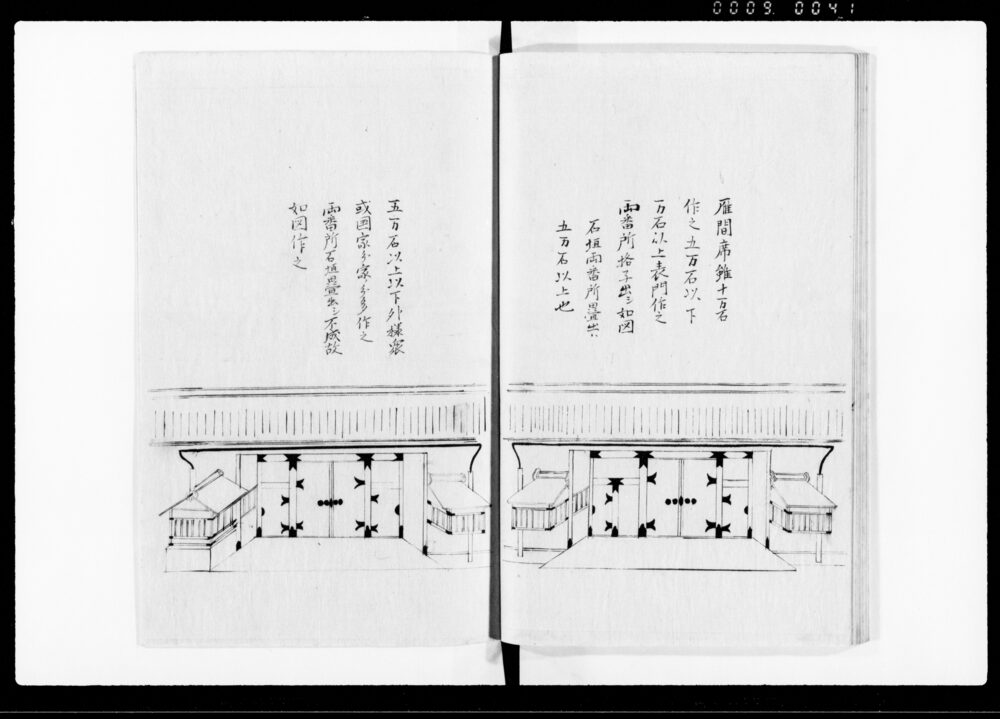 0009 0041
雁間席雖十万石
作之五万石以下
万石以上表門作之
両番所格子出シ如図
石垣両番所畳出ハ
五万石以上也
五万石以上以下外様衆
或国家分家分多作之
両番所石垣畳出シ不成故
如図作之